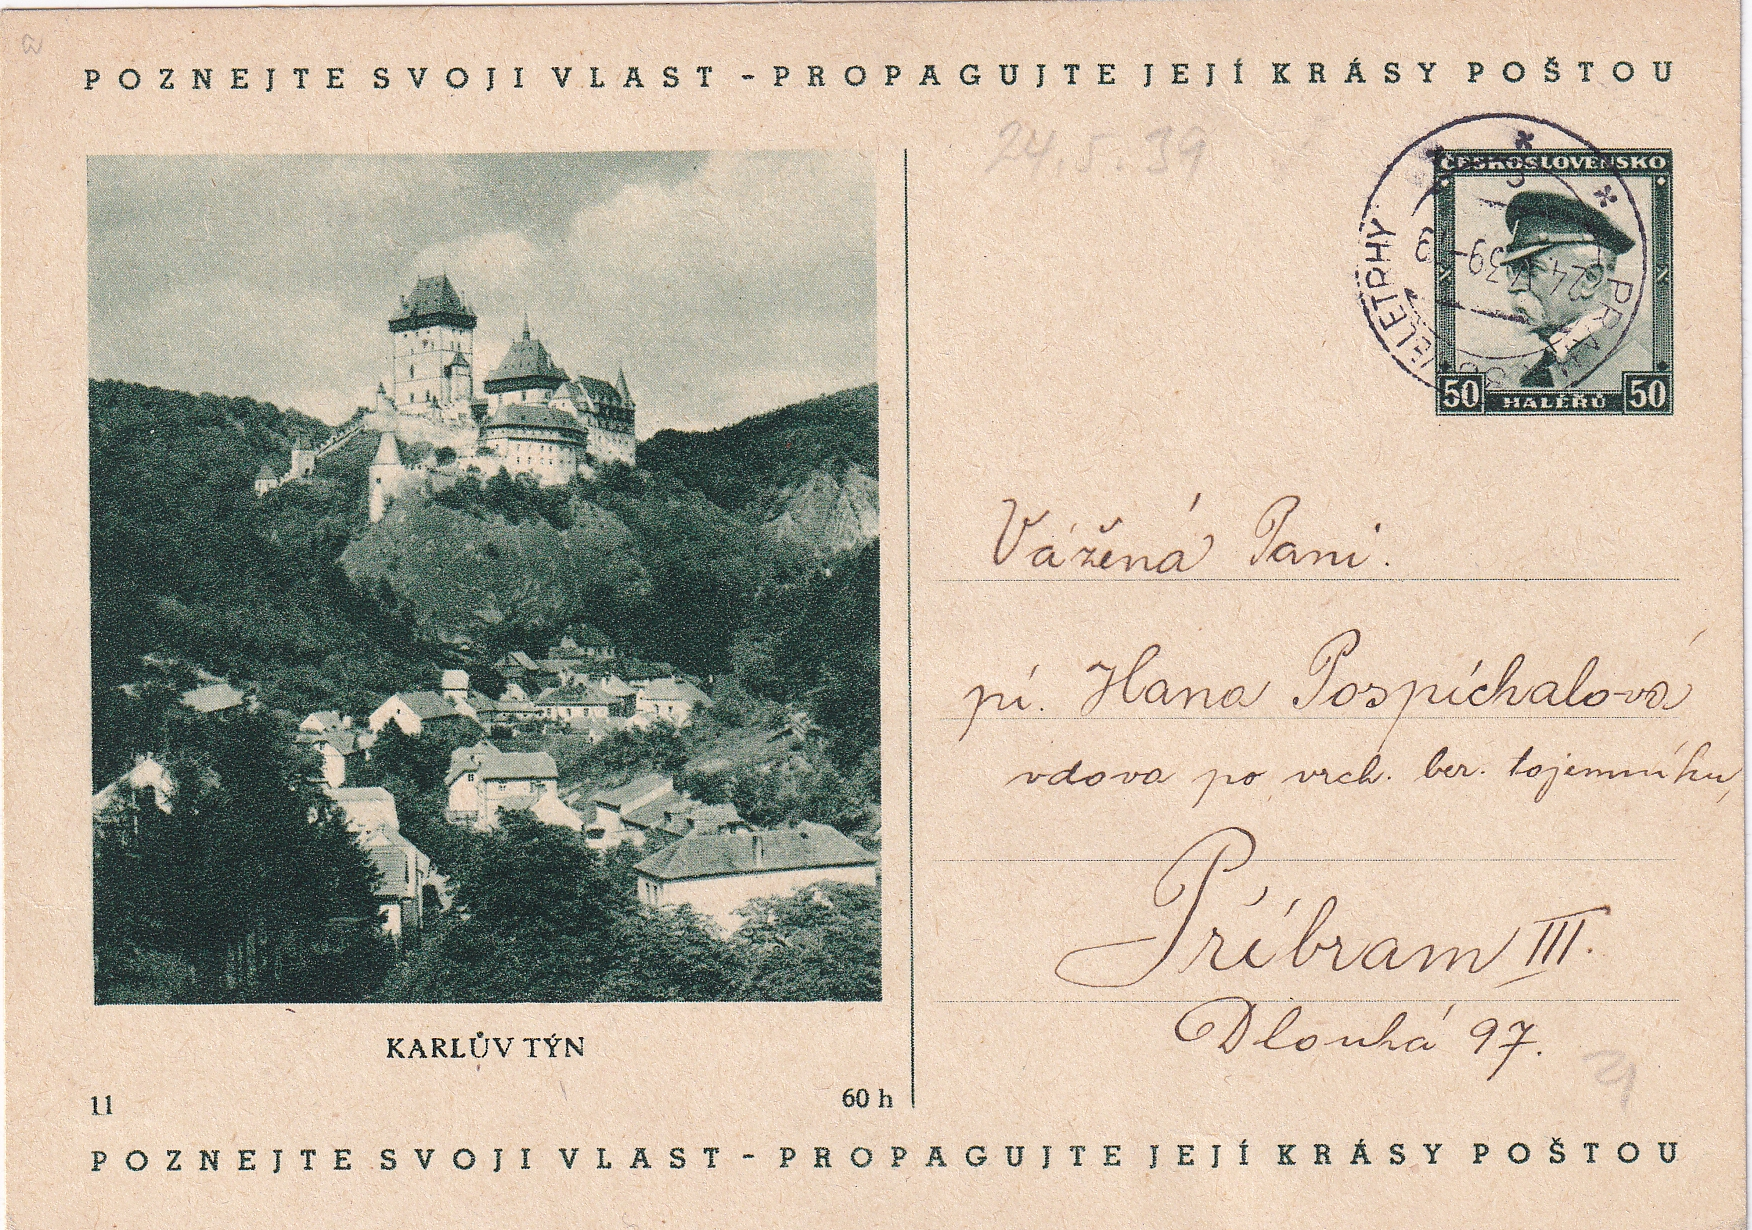 POZNEJTE SVOJI VLAST - PROPAGUJTE JEJÍ KRÁSY POŠTOU
24.5.39
ČESKOSLOVENSKO
50 HALÉŘŮ 50
Vážená Paní.
pí. Hana Pospíchalová
vdova po vrch. ber. tajemníku,
Příbram III.
Dlouhá 97.
KARLŮV TÝN
11
60 h
POZNEJTE SVOJI VLAST - PROPAGUJTE JEJÍ KRÁSY POŠTOU